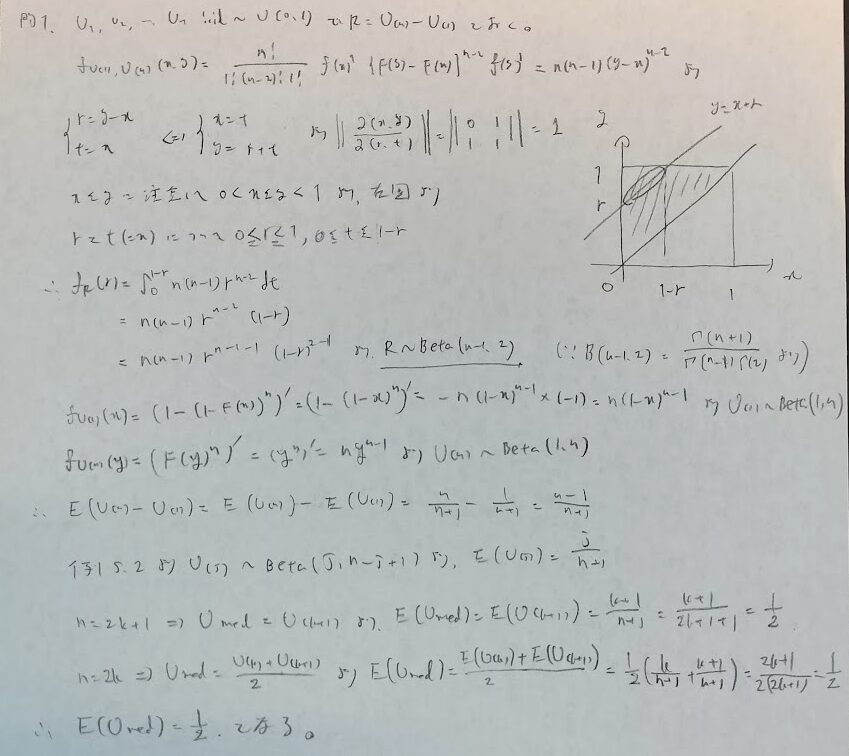 問1. U₁, U₂, … Uₙ iid ~ U(0,1) で R = U₍ₙ₎ − U₍₁₎ とおく。
f_{U₍₁₎,U₍ₙ₎}(x,y) = n!/(1!(n-2)!1!) f(x)¹ {F(y) − F(x)}^{n-2} f(y)¹ = n(n-1)(y-x)^{n-2} より
{r = y-x, t = x ⇔ {x = t, y = r+t より ||∂(x,y)/∂(r,t)|| = ||0 1, 1 1|| = 1
x ≤ y に注意して 0<x≤y<1 より, 右図より
r と t(=x) について 0≤r≤1, 0≤t≤1-r
∴ f_R(r) = ∫₀^{1-r} n(n-1) r^{n-2} dt
= n(n-1) r^{n-2} (1-r)
= n(n-1) r^{n-1-1} (1-r)^{2-1} より, R ~ Beta(n-1, 2) (∵ B(n-1, 2) = Γ(n+1)/Γ(n-1)Γ(2) より)
y
y=x+r
1
r
0
1-r
1
x
f_{U₍₁₎}(x) = (1-(1-F(x))ⁿ)' = (1-(1-x)ⁿ)' = -n(1-x)^{n-1} × (-1) = n(1-x)^{n-1} より U₍₁₎ ~ Beta(1,n)
f_{U₍ₙ₎}(y) = (F(y)ⁿ)' = (yⁿ)' = n y^{n-1} より U₍ₙ₎ ~ Beta(1,n)
∴ E(U₍ₙ₎ − U₍₁₎) = E(U₍ₙ₎) − E(U₍₁₎) = n/(n+1) − 1/(n+1) = (n-1)/(n+1)
例5.2 より U₍ⱼ₎ ~ Beta(j, n-j+1) より, E(U₍ⱼ₎) = j/(n+1)
n = 2k+1 ⇒ Umed = U₍ₖ₊₁₎ より, E(Umed) = E(U₍ₖ₊₁₎) = (k+1)/(n+1) = (k+1)/(2k+1+1) = 1/2
n = 2k ⇒ Umed = (U₍ₖ₎ + U₍ₖ₊₁₎)/2 より E(Umed) = (E(U₍ₖ₎) + E(U₍ₖ₊₁₎))/2 = 1/2 (k/(n+1) + (k+1)/(n+1)) = (2k+1)/(2(2k+1)) = 1/2
∴ E(Umed) = 1/2 となる。